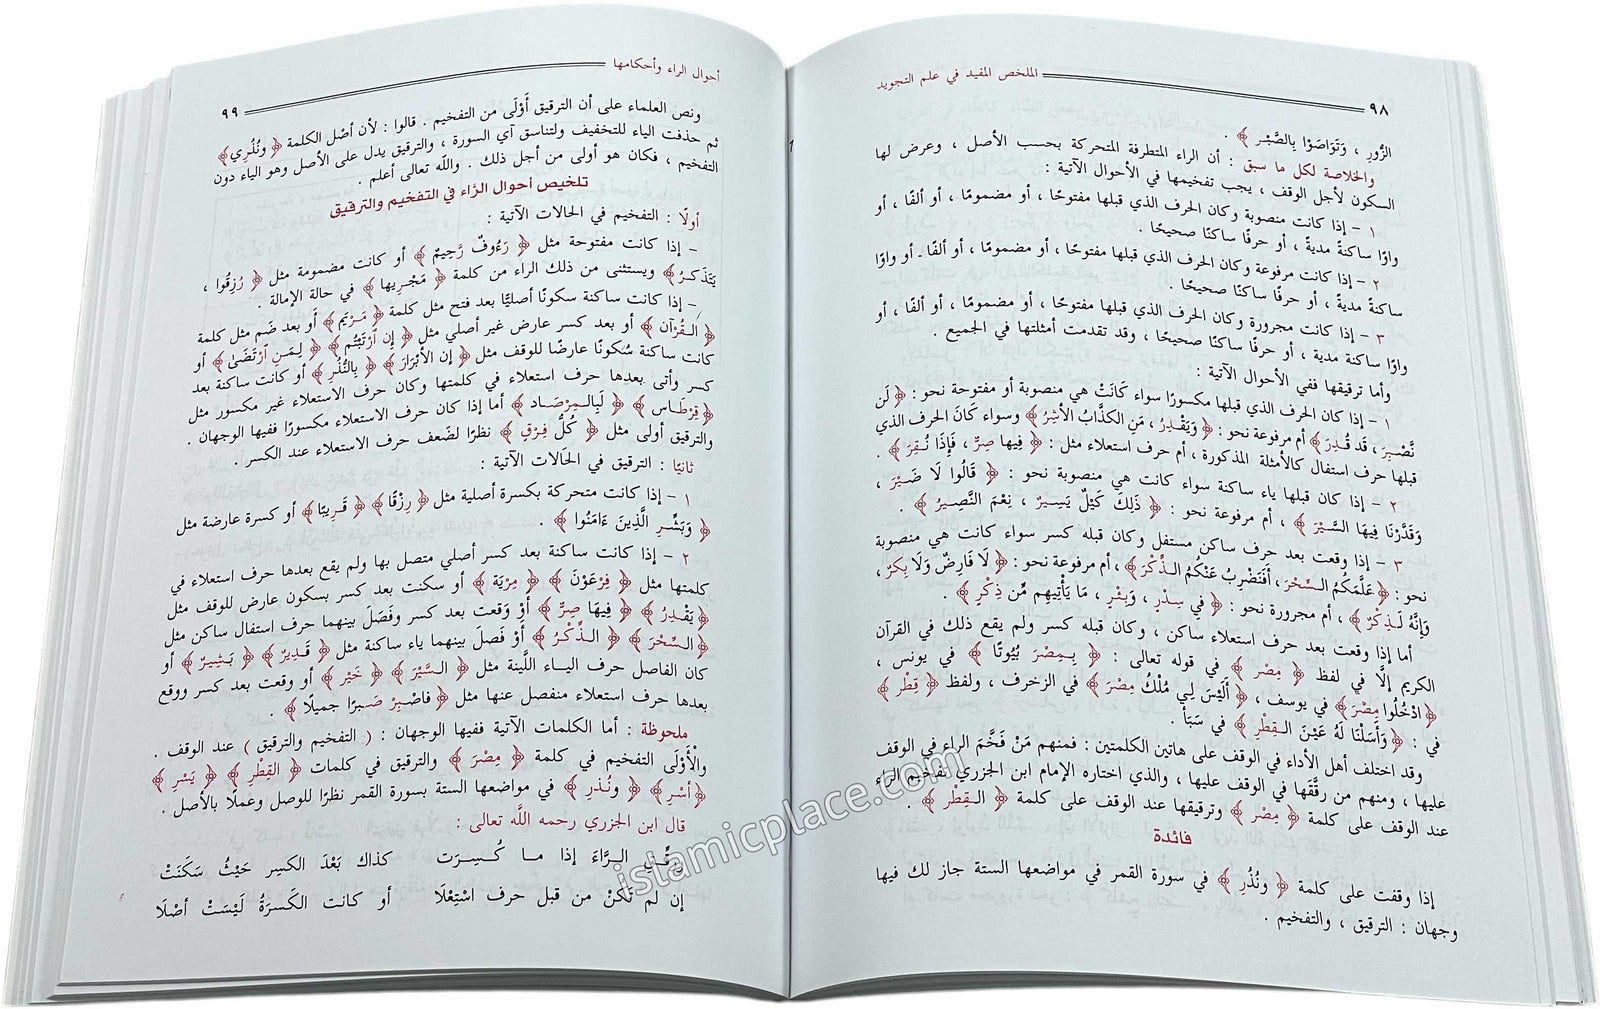 ٩٨ الملخص المفيد في علم التجويد
الزُّورِ ، وَتَوَاصَوْا بِالصَّبْرِ ﴾ .
والخلاصة لكل ما سبق : أن الراء المتطرفة المتحركة بحسب الأصل ، وعرض لها
السكون لأجل الوقف ، يجب تفخيمها في الأحوال الآتية :
١ – إذا كانت منصوبة وكان الحرف الذي قبلها مفتوحًا ، أو مضمومًا ، أو ألفًا ، أو
واوًا ساكنةً مديةً ، أو حرفًا ساكنًا صحيحًا .
٢ – إذا كانت مرفوعة وكان الحرف الذي قبلها مفتوحًا ، أو مضمومًا ، أو ألفًا ـ أو واوًا
ساكنةً مديةً ، أو حرفًا ساكنًا صحيحًا .
٣ – إذا كانت مجرورة وكان الحرف الذي قبلها مفتوحًا ، أو مضمومًا ، أو ألفًا ، أو
واوًا ساكنة مدية ، أو حرفًا ساكنًا صحيحًا ، وقد تقدمت أمثلتها في الجميع .
وأما ترقيقها ففي الأحوال الآتية :
١ – إذا كان الحرف الذي قبلها مكسورًا سواء كَانَتْ هي منصوبة أو مفتوحة نحو : ﴿ لَن
نَّصْبِرَ ، قَد قُدِرَ ﴾ أم مرفوعة نحو : ﴿ وَيَقْدِرُ ، مَنِ الكَذَّابُ الأَشِرُ ﴾ وسواء كَانَ الحرف الذي
قبلها حرف استفال كالأمثلة المذكورة ، أم حرف استعلاء مثل : ﴿ فِيها صِرٌّ ، فَإِذَا نُقِرَ ﴾ .
٢ – إذا كان قبلها ياء ساكنة سواء كانت هي منصوبة نحو : ﴿ قَالُوا لَا ضَيْرَ ،
وَقَدَّرْنَا فِيهَا السَّيْرَ ﴾ ، أم مرفوعة نحو : ﴿ ذَلِكَ كَيْلٌ يَسِيرٌ ، نِعْمَ النَّصِيرُ ﴾ .
٣ – إذا وقعت بعد حرف ساكن مستفل وكان قبله كسر سواء كانت هي منصوبة
نحو : ﴿ عَلَّمَكُمُ السِّحْرَ ، أَفَنَضْرِبُ عَنْكُمُ الذِّكْرَ ﴾ ، أم مرفوعة نحو : ﴿ لَا فَارِضٌ وَلَا بِكرٌ ،
وَإِنَّهُ لَذِكْرٌ ﴾ ، أم مجرورة نحو : ﴿ في سِدْرٍ ، وَبِئْرٍ ، مَا يَأْتِيهِم مِّن ذِكْرٍ ﴾ .
أما إذا وقعت بعد حرف استعلاء ساكن ، وكان قبله كسر ولم يقع ذلك في القرآن
الكريم إلَّا في لفظ ﴿ مِصْر ﴾ في قوله تعالى : ﴿ بِمِصْرَ بُيُوتًا ﴾ في يونس ،
﴿ ادْخُلُوا مِصْرَ ﴾ في يوسف ، ﴿ أَلَيْسَ لِي مُلْكُ مِصْرَ ﴾ في الزخرف ، ولفظ ﴿ قِطْر ﴾
في : ﴿ وَأَسَلْنَا لَهُ عَيْنَ القِطْرِ ﴾ في سَبَأ .
وقد اختلف أهل الأداء في الوقف على هاتين الكلمتين : فمنهم مَنْ فَخَّمَ الراء في الوقف
عليها ، ومنهم من رقَّقَها في الوقف عليها ، والذي اختاره الإمام ابن الجزري تفخيم الراء
عند الوقف على كلمة ﴿ مِصْر ﴾ وترقيقها عند الوقف على كلمة ﴿ القِطْر ﴾ .
فائدة
إذا وقفت على كلمة ﴿ ونُذُرِ ﴾ في سورة القمر في مواضعها الستة جاز لك فيها
وجهان : الترقيق ، والتفخيم .
أحوال الراء وأحكامها ٩٩
ونص العلماء على أن الترقيق أَوْلَى من التفخيم . قالوا : لأن أصْل الكلمة ﴿ ونُذُرِي ﴾
ثم حذفت الياء للتخفيف ولتناسق آي السورة ، والترقيق يدل على الأصل وهو الياء دون
التفخيم ، فكان هو أولى من أجل ذلك . والله تعالى أعلم .
تلخيص أحوال الرَّاء في التفخيم والترقيق
أولًا : التفخيم في الحالات الآتية :
– إذا كانت مفتوحة مثل ﴿ رَءُوفٌ رَّحِيمٌ ﴾ أو كانت مضمومة مثل ﴿ رُزِقُوا ،
يَتَذَكرُ ﴾ ويستثنى من ذلك الراء من كلمة ﴿ مَجْرِيها ﴾ في حالة الإمالة .
– إذا كانت ساكنة سكونًا أصليًّا بعد فتح مثل كلمة ﴿ مَرْيَم ﴾ أَو بعد ضَم مثل كلمة
﴿ القُرْآن ﴾ أو بعد كسر عارض غير أصلي مثل ﴿ إِن ٱرْتَبْتُم ﴾ ﴿ لِمَنِ ٱرْتَضَىٰ ﴾ أو
كانت ساكنة سُكونًا عارضًا للوقف مثل ﴿ إن الأَبْرَارَ ﴾ ﴿ بِالنُّذُرِ ﴾ أو كانت ساكنة بعد
كسر وأتى بعدها حرف استعلاء في كلمتها وكان حرف الاستعلاء غير مكسور مثل
﴿ قِرْطَاس ﴾ ﴿ لَبِالمِرْصَاد ﴾ أما إذا كان حرف الاستعلاء مكسورًا ففيها الوجهان .
والترقيق أولى مثل ﴿ كُلُّ فِرْقٍ ﴾ نظرًا لضَعف حرف الاستعلاء عند الكسر .
ثانيًا : الترقيق في الحَالات الآتية :
١ – إذا كانت متحركة بكسرة أصلية مثل ﴿ رِزْقًا ﴾ ﴿ قَرِيبًا ﴾ أو كسرة عارضة مثل
﴿ وَبَشِّرِ الَّذِينَ ءَامَنُوا ﴾ .
٢ – إذا كانت ساكنة بعد كسر أصلي متصل بها ولم يقع بعدها حرف استعلاء في
كلمتها مثل ﴿ فِرْعَوْنَ ﴾ ﴿ مِرْيَة ﴾ أو سكنت بعد كسر بسكون عارض للوقف مثل
﴿ يَقْدِرُ ﴾ ﴿ فِيهَا صِرٌّ ﴾ أَوْ وَقعت بعد كسر وفَصَلَ بينهما حرف استفال ساكن مثل
﴿ السِّحْرَ ﴾ ﴿ الذِّكْرُ ﴾ أَوْ فَصلَ بينهما ياء ساكنة مثل ﴿ قَدِيرٌ ﴾ ﴿ بَشِيرٌ ﴾ أو
كان الفاصل حرف الياء اللَّينة مثل ﴿ السَّيْرَ ﴾ ﴿ خَيْر ﴾ أو وقعت بعد كسر ووقع
بعدها حرف استعلاء منفصل عنها مثل ﴿ فاصْبِرْ صَبرًا جميلًا ﴾ .
ملحوظة : أما الكلمات الآتية ففيها الوجهان : ( التفخيم والترقيق ) عند الوقف .
والأَوْلَى التفخيم في كلمة ﴿ مِصْرَ ﴾ والترقيق في كلمات ﴿ القِطْرِ ﴾ ﴿ يَسْرِ ﴾
﴿ أَسْرِ ﴾ ﴿ ونُذرِ ﴾ في مواضعها الستة بسورة القمر نظرًا للوصل وعملًا بالأصل .
قال ابن الجزري رحمه اللَّه تعالى :
ورقِّقِ الرَّاءَ إذا ما كُسِرَت كذاك بَعْدَ الكسرِ حَيْثُ سَكَنَتْ
إن لم تَكُنْ من قبل حرف اسْتِعْلَا أو كانت الكَسرَةُ لَيْسَتْ أصْلَا
islamicplace.com